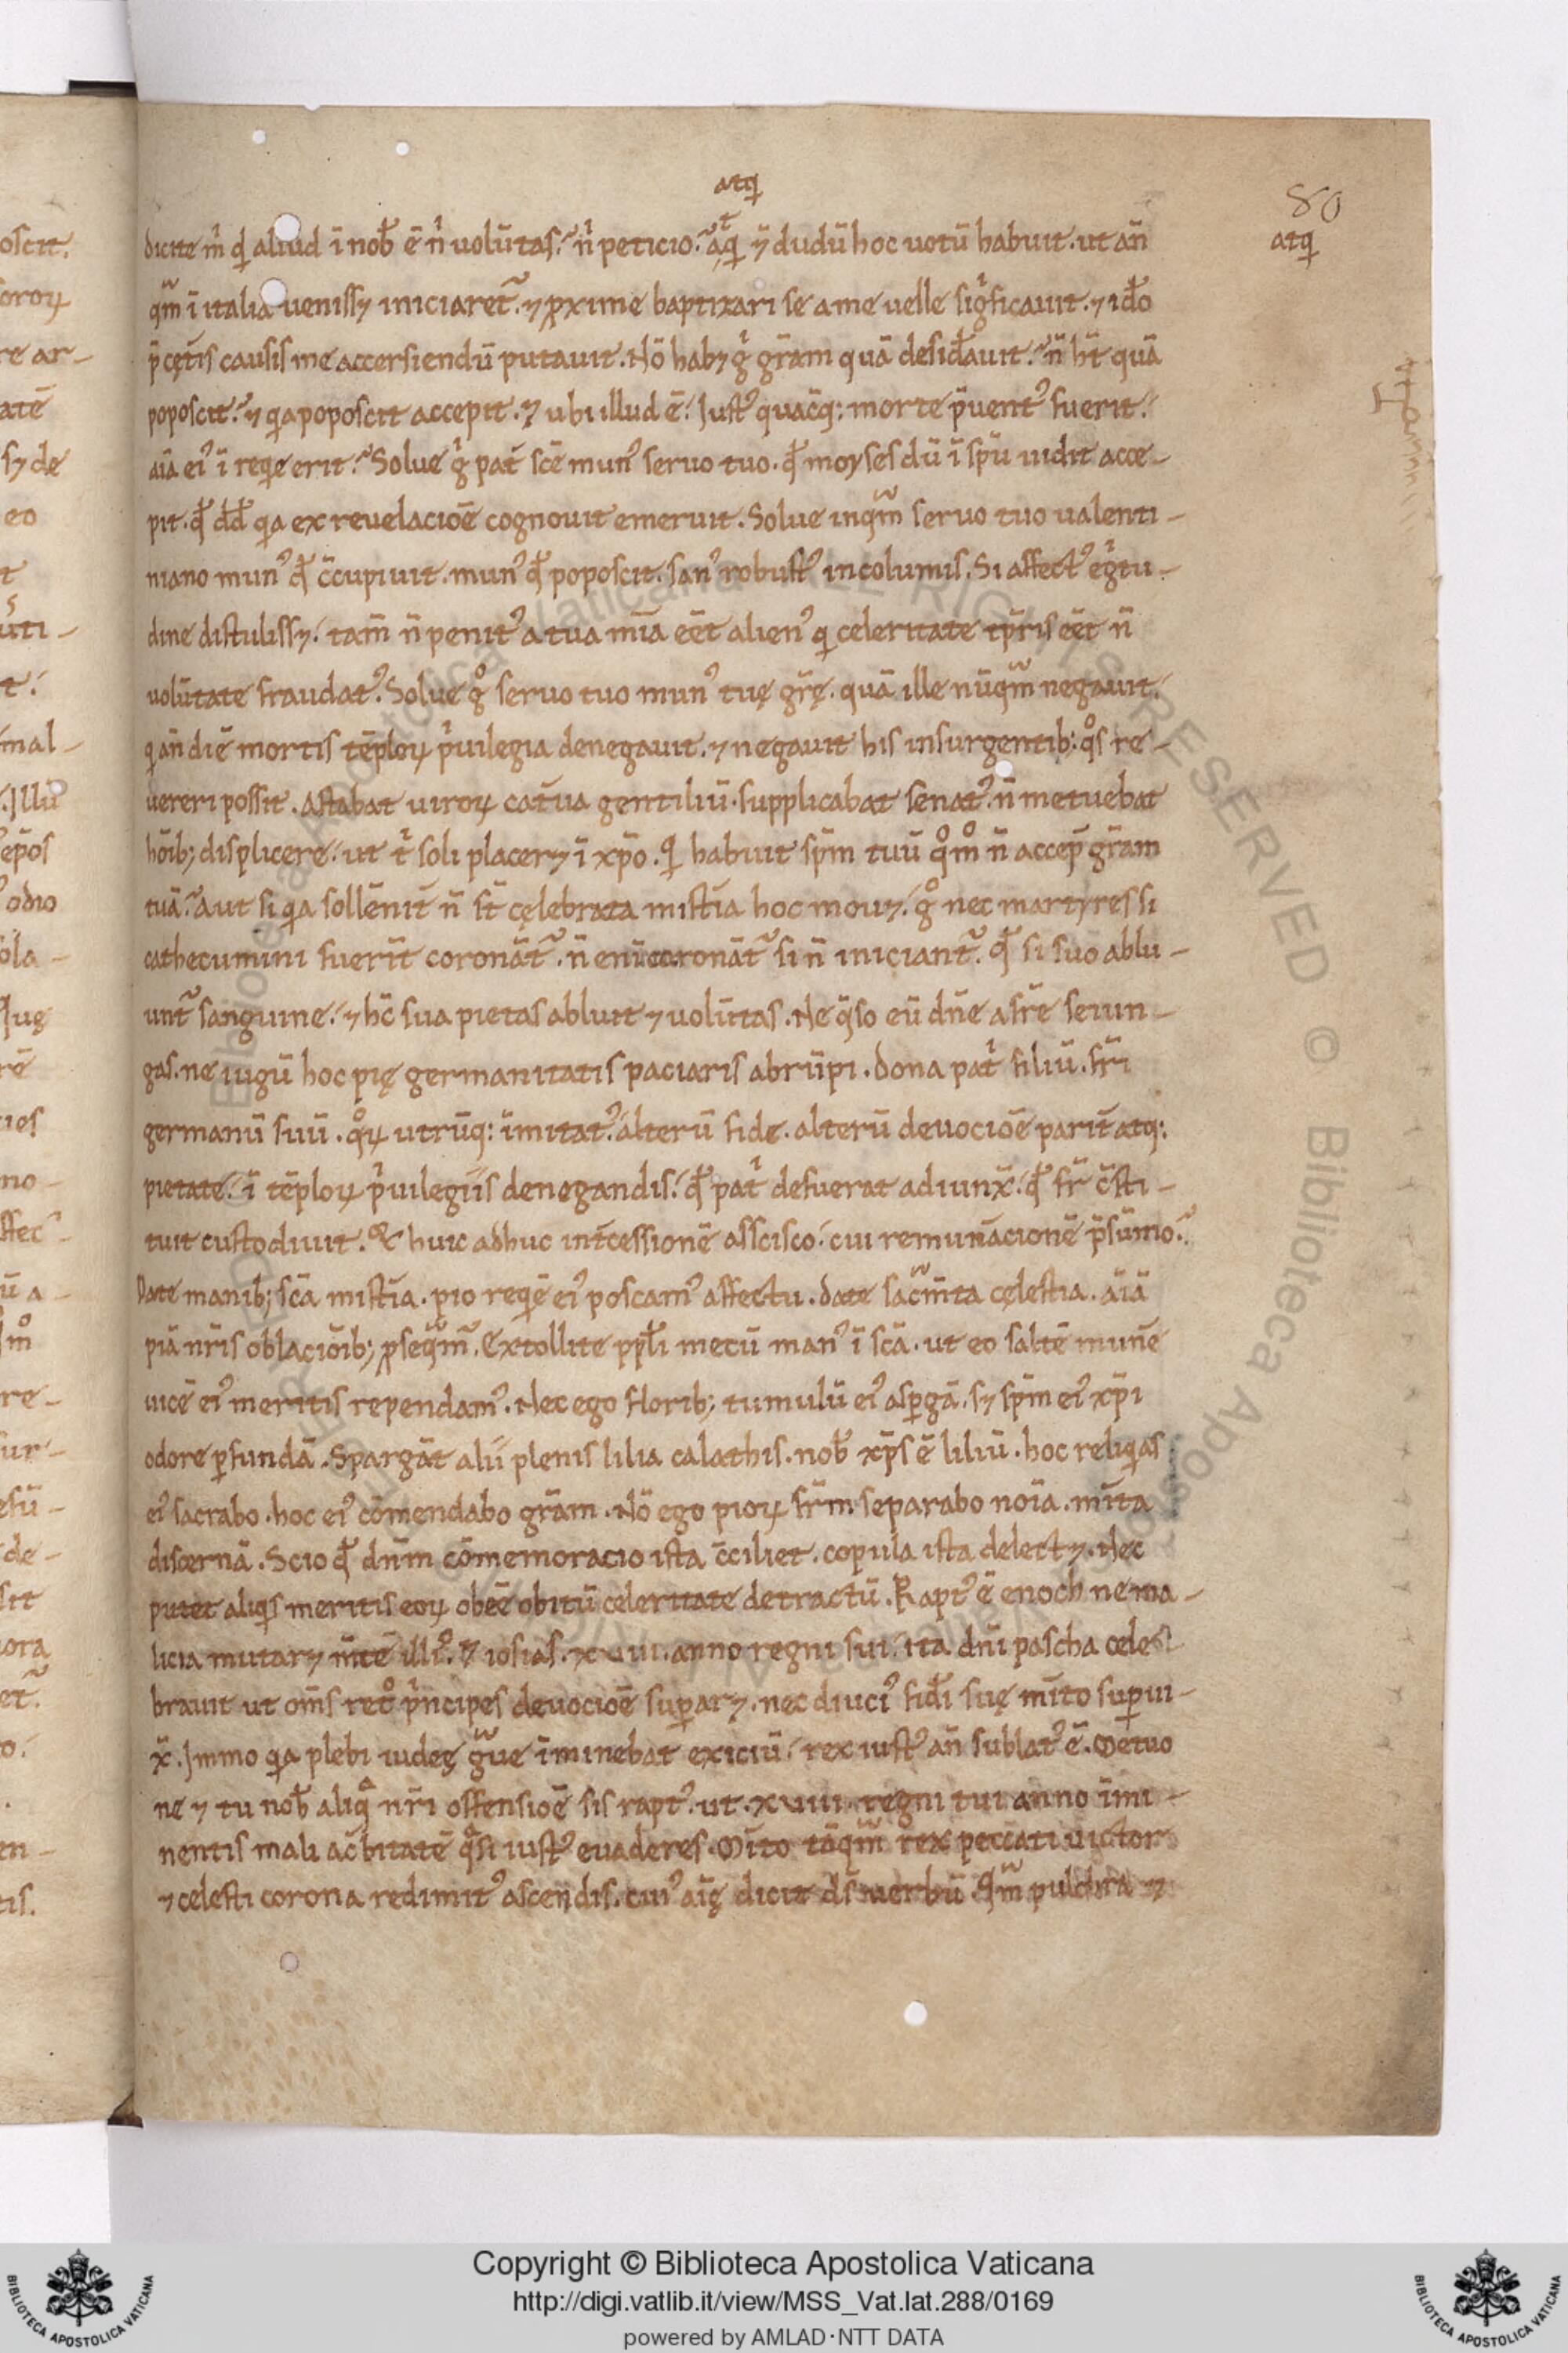 atq
80
dicite m̄ qd aliud ī nob̄ ē n̄ uolūtas. n̄ peticio. aq̄ ⁊ dudū hoc uotū habuit. ut an̄
atq
qm̄ ī italia uenissꝫ iniciaret᷑. ⁊ ꝓxime baptizari se a me uelle significauit. ⁊ ido
p̄cętis causis me accersiendū putauit. Nō habꝫ g̊ grām quā desid̄auit. n̄ ht̄ quā
poposcit. ⁊ qa poposcit accepit. ⁊ ubi illud ē. Iustꝰ quacq: morte p̄uentꝰ fuerit.
aīa eiꝰ ī reqe erit. Solue g̊ pat̄ scē munꝰ seruo tuo. qd̄ moyses dū ī spū uidit acce-
pit. qd̄ dd̄ qa ex reuelacioē cognouit emeruit. Solue inqm̄ seruo tuo ualenti-
niano munꝰ qd̄ c̄cupiuit. munꝰ qd̄ poposcit. sanꝰ robustꝰ incolumis. Si affectꝰ egtu-
dine distulissꝫ. tam̄ n̄ penitꝰ a tua mīa eēt alienꝰ q celeritate tp̄ris eēt n̄
uolūtate fraudatꝰ. Solue g̊ seruo tuo munꝰ tuę grę̄. quā ille nūqm̄ negauit.
q an̄ diē mortis tēploꝝ p̄uilegia denegauit. ⁊ negauit his insurgentib: qs re-
uereri possit. Astabat uiroꝝ cat̄ua gentiliū. supplicabat senatꝰ. n̄ metuebat
hōib; displicere. ut t̄ soli placerꝫ ī xp̄o. Q habuit spm̄ tuū qm̊ n̄ accep̄ grām
tuā. Aut si qa sollēnit̄ n̄ st̄ cęlebrata mistīa hoc mouꝫ. g̊ nec martyres si
cathecumini fuerīt coronāt᷑. n̄ enī coronāt᷑ si n̄ iniciant᷑. qd̄ si suo ablu-
unt᷑ sanguine. ⁊ hc̄ sua pietas abluit ⁊ uolūtas. Ne q̄so eū dn̄e a frē seiun-
gas. ne iugū hoc pię germanitatis paciaris abrūpi. Dona pat̄ filiū. frī
germanū suū. qꝝ utrūq: imitatꝰ. alterū fide. alterū deuocioē parit̄ atq:
pietate. ī tēploꝝ p̄uilegiis denegandis. qd̄ pat̄ defuerat adiunx̄. qd̄ fr̄ c̄sti-
tuit custodiuit. & huic adhuc int̄cessionē asscisco. cui remun̄acionē p̄sūmo.
Date manib; scā mistīa. pio reqē eiꝰ poscamꝰ affectu. date sacm̄ta cęlestia. aīā
piā nr̄is oblaciōib; ꝓseqm̄. Extollite ppl̄i mecū manꝰ ī scā. ut eo saltē mun̄e
uicē eiꝰ meritis rependamꝰ. Nec ego florib; tumulū eiꝰ asꝑgā. sꝫ spm̄ eiꝰ xp̄i
odore ꝑfundā. Spargāt alii plenis lilia calathis. nob̄ xp̄s ē liliū. hoc reliqas
eiꝰ sacrabo. hoc eiꝰ cōmendabo grām. Nō ego pioꝝ frm̄ separabo noīa. mīta
discernā. Scio qd̄ dnm̄ cōmemoracio ista c̄ciliet. copula ista delectꝫ. Nec
putet aliqs meritis eoꝝ obeē obitū celeritate detractū. Raptꝰ ē enoch ne ma-
licia mutarꝫ mt̄ē illiꝰ. ⁊ iosias. xviii. anno regni sui. ita dn̄i pascha cele-
brauit ut om̄s ret̊ p̄ncipes deuocioē suꝑarꝫ. nec diuciꝰ fid̄i suę mīto suꝑui-
x̄. Immo qa plebi iudeę gue īminebat exiciū. rex iustꝰ an̄ sublatꝰ ē. Metuo
ne ⁊ tu nob̄ aliq nr̄i offensioē sis raptꝰ. ut. xviii. regni tui anno īmi-
nentis mali ac̄bitatē qsi iustꝰ euaderes. Mīto tāqm̄ rex peccati uictor
⁊ celesti corona redimitꝰ ascendis. cuiꝰ aīę dicit dī uerbū. Qm̄ pulchra ⁊
Copyright © Biblioteca Apostolica Vaticana
http://digi.vatlib.it/view/MSS_Vat.lat.288/0169
powered by AMLAD·NTT DATA